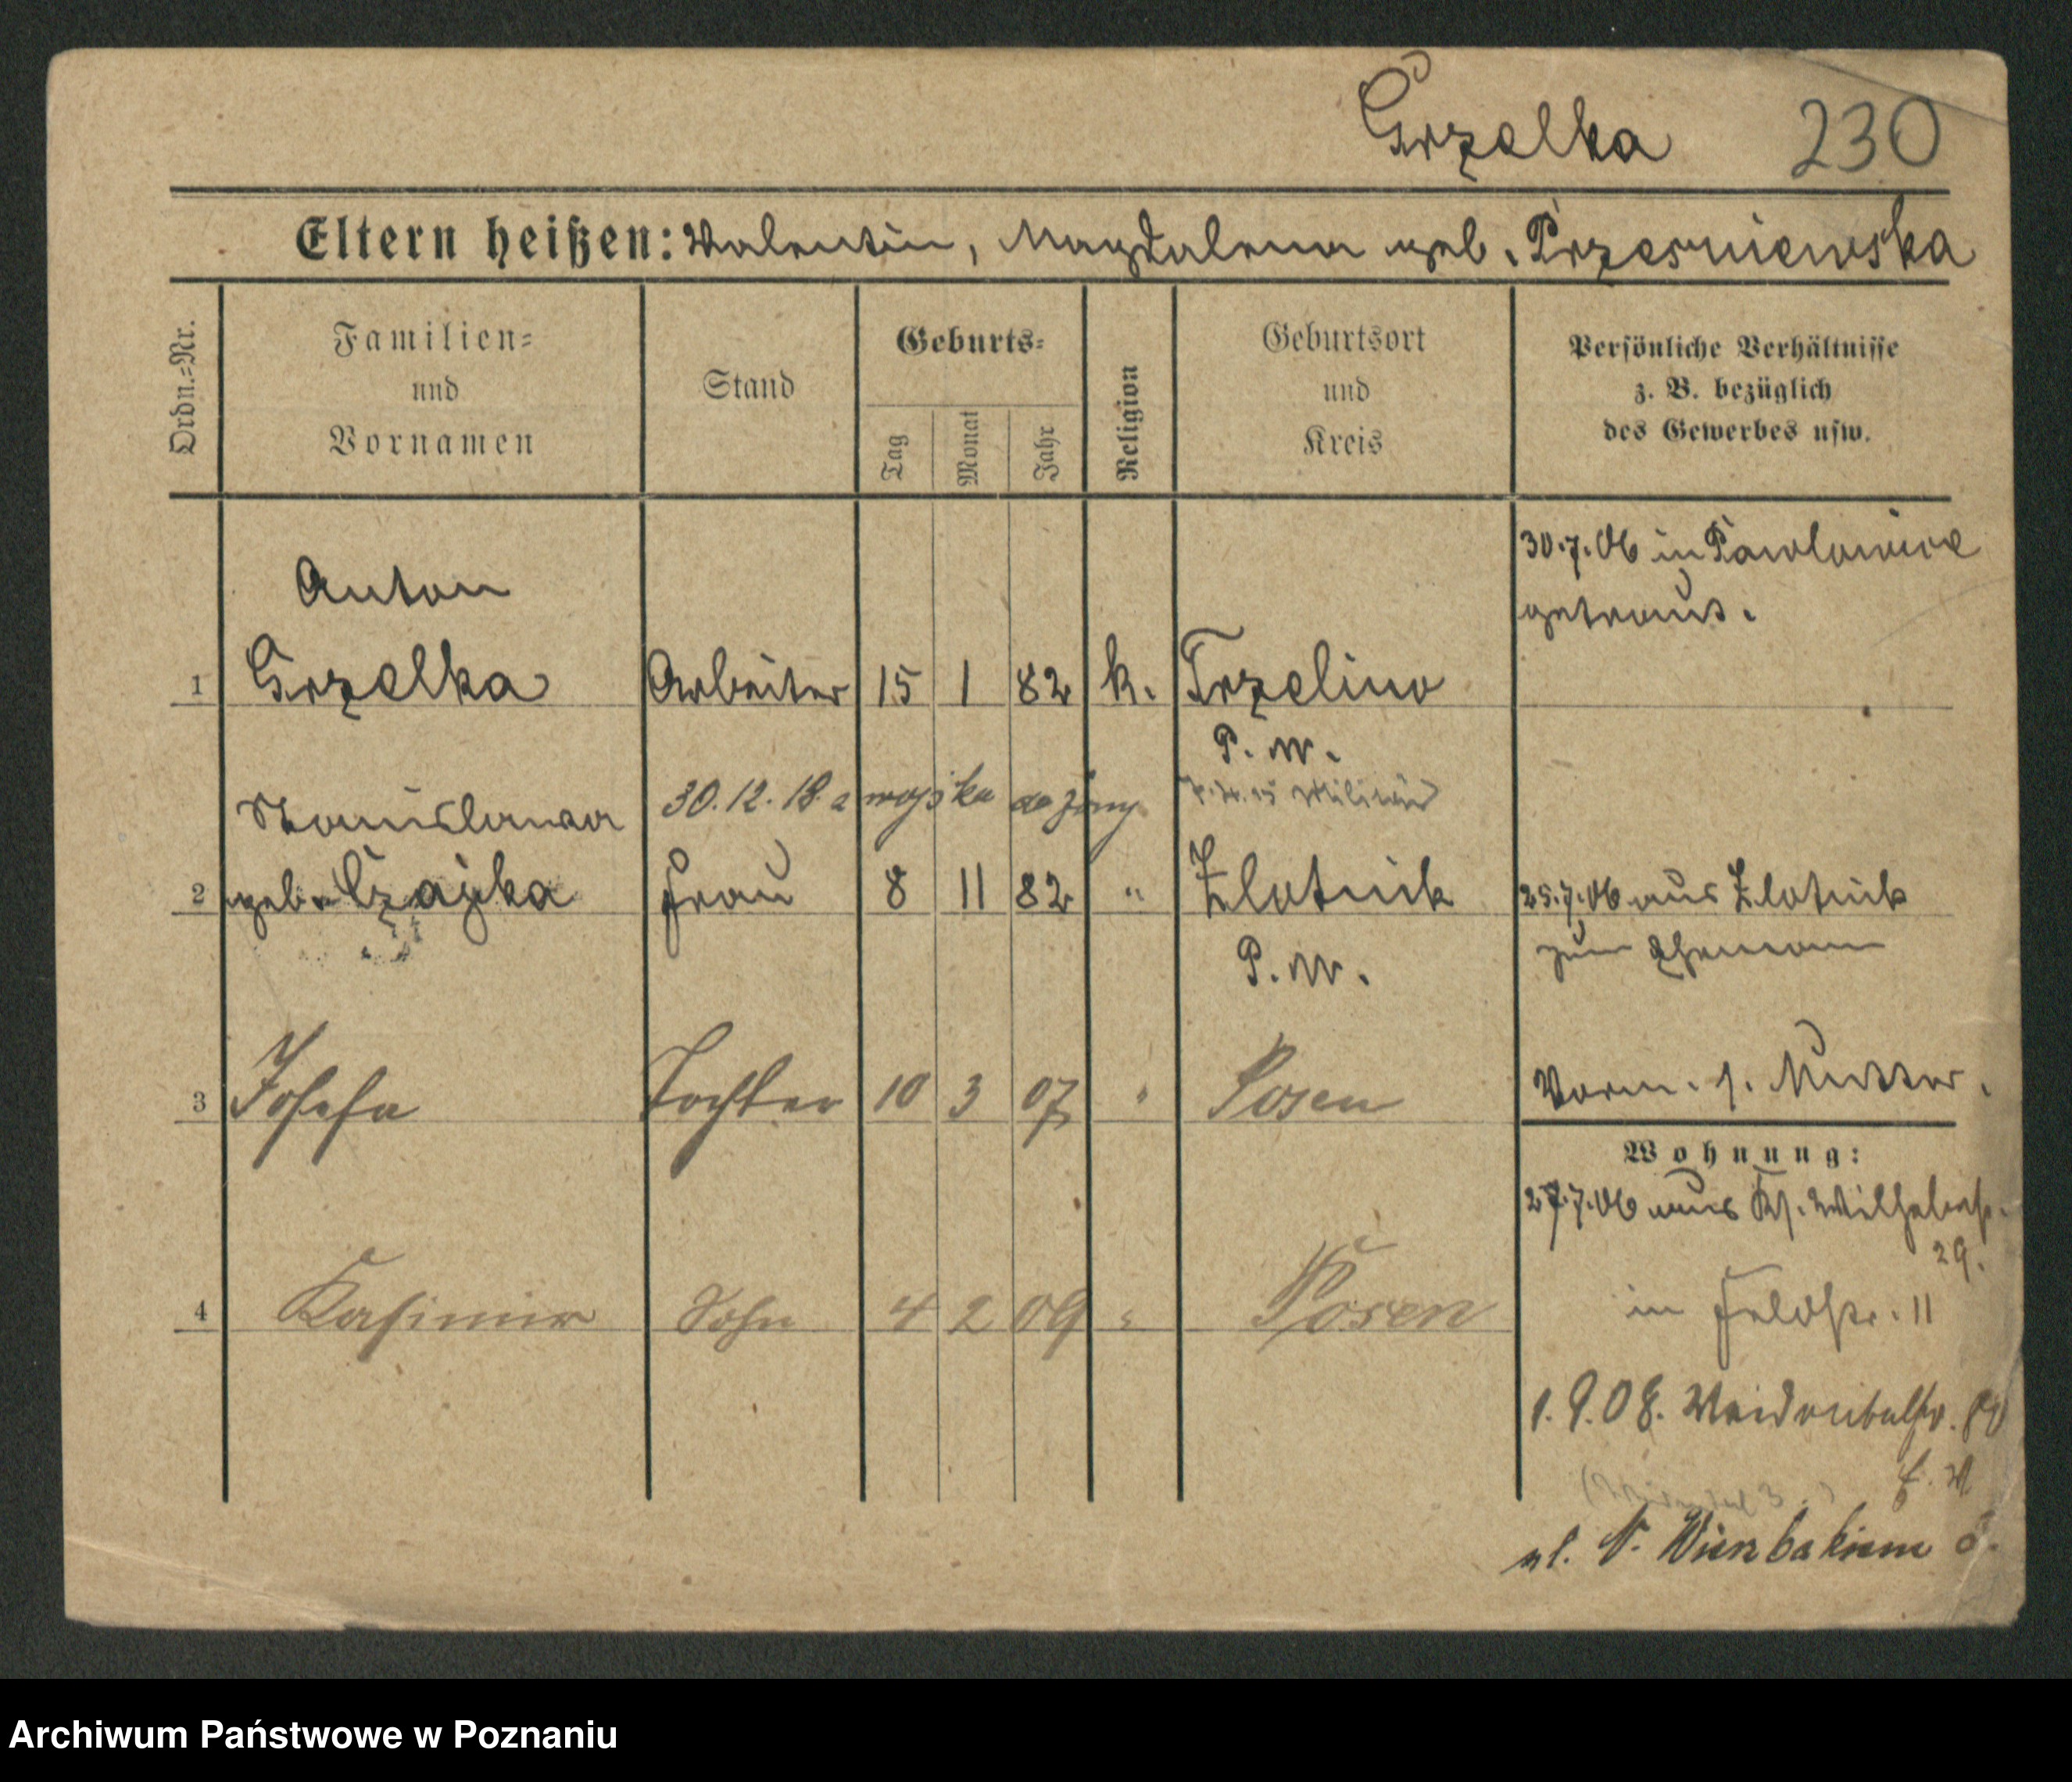 Grzelka 230
Eltern heißen: Valentin, Magdalena geb. Przesniewska
Ordn.=Nr.
Familien=
und
Vornamen
Stand
Geburts=
Tag
Monat
Jahr
Religion
Geburtsort
und
Kreis
Persönliche Verhältnisse
z. B. bezüglich
des Gewerbes usw.
30.7.06 in Pawlowice
getraut.
Anton
1 Grzelka Arbeiter 15 1 82 k. Trzelino
P. W.
30.12.18 z wojska do żony
Militär
Stanislawa
2 geb. Czajka Frau 8 11 82 " Zlotnik
P. W.
25.7.06 aus Zlotnik
zum Ehemann
3 Josefa Tochter 10 3 07 " Posen
Vorm. s. Mutter.
Wohnung:
27.7.06 aus Ks. Wilhelmstr.
29.
in Feldstr. 11
4 Kasimir Sohn 4 2 09 " Posen
1.9.08. Naidonitalstr.
ul. N. Wierzbakiem 3.
Archiwum Państwowe w Poznaniu